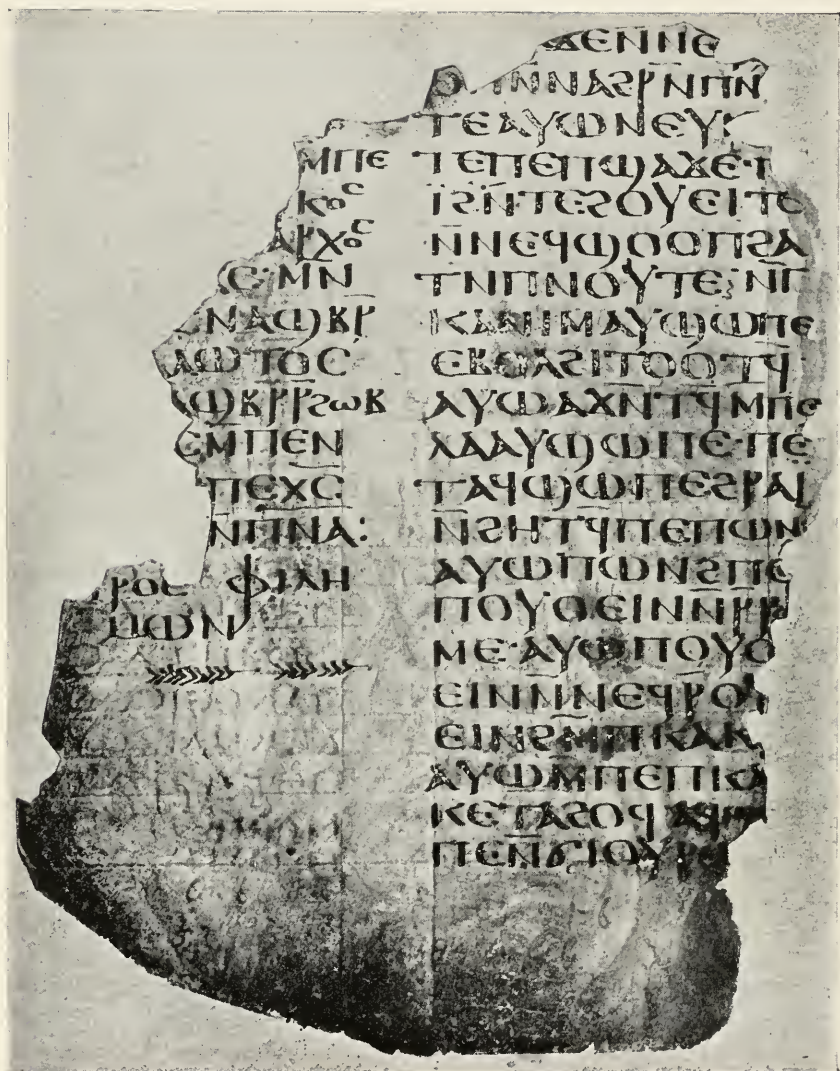 ⲙⲡⲉ
ⲕⲟⲥ
ⲁⲣⲭⲟⲥ
ⲥ·ⲙⲛ
ⲛⲁϣⲃⲣ
ⲗⲱⲧⲟⲥ
ϣⲃⲣⲣϩⲱⲃ
ⲥⲙⲡⲉⲛ
ⲡⲉⲭ̅ⲥ̅
ⲛⲡⲛ̅ⲁ̅:
ⲣⲟⲥ ⲫⲓⲗⲏ
ⲙⲱⲛ
ϫⲉⲛⲛⲉ
ⲛⲛⲁϩⲣⲛⲡⲛ
ⲧⲉⲁⲩⲱⲛⲉⲩ
ⲧⲉⲡⲉⲡϣⲁϫⲉ·
ⲓϩⲛ̅ⲧⲉϩⲟⲩⲉⲓⲧⲉ
ⲛ̅ⲛⲉϥϣⲟⲟⲡϩⲁ
ⲧⲛⲡⲛⲟⲩⲧⲉ·ⲛⲧ
ⲕⲁⲛⲓⲙⲁⲩϣⲱⲡⲉ
ⲉⲃⲟⲗϩⲓⲧⲟⲟⲧϥ
ⲁⲩⲱⲁϫⲛⲧϥⲙⲡⲉ
ⲗⲁⲁⲩϣⲱⲡⲉ·ⲡⲉ
ⲧⲁϥϣⲱⲡⲉϩⲣⲁⲓ
ⲛϩⲏⲧϥⲡⲉⲡⲱⲛ
ⲁⲩⲱⲡⲱⲛϩⲡⲉ
ⲡⲟⲩⲟⲉⲓⲛⲛⲣⲣ
ⲙⲉ·ⲁⲩⲱⲡⲟⲩⲟ
ⲉⲓⲛⲛⲛⲉϥⲣⲟⲩ
ⲉⲓⲛϩⲙ̅ⲡⲕⲁⲕ
ⲁⲩⲱⲙⲡⲉⲡⲕⲁ
ⲕⲉⲧⲁϩⲟϥⲁϥ
ⲡⲉⲛϭⲓⲟⲩⲣ